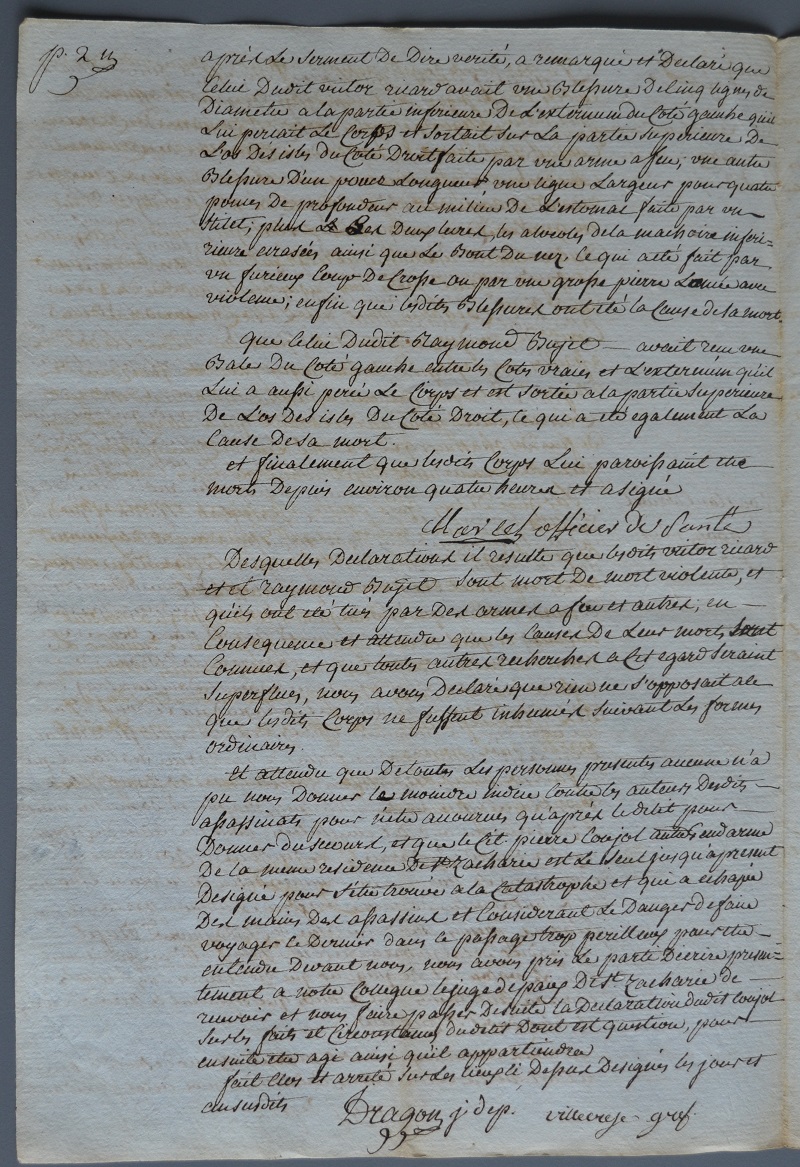 p. 2
après Le Serment De Dire verité, a remarqué et Declaré que
Celui Dudit victor ricard avait une Blessure De cinq lignes de
Diametre a la partie inferieure De L'externum du Coté gauche qui
Lui perçait Le Corps et Sortait sur La partie Superieure De
L'os Des isles du Coté Droit faite par une arme a feu; une autre
Blessure D'un pouce Longueur, une ligne Largeur pour quatre
pouces De profondeur au milieu De L'estomac faite par un
Stilet; plus Les Deux levres, les alveoles de la machoire infe-
rieure ecrasées ainsi que Le Bout Du nez, ce qui a été fait par
un furieux Coup De Crosse ou par une grosse pierre Lancée avec
violence; enfin que lesdites Blessures ont été la Cause de sa mort.
que Celui Dudit Raymond Bujet — avait reçu une
Bale Du Coté gauche entre les Cotes vraies et L'externum qu'il
Lui a aussi percé Le Corps et est sortie a la partie Superieure
De L'os Des isles Du Coté Droit, ce qui a été également La
Cause De sa mort.
et finalement que lesdits Corps Lui paroissaint etre
morts Depuis environ quatre heures et a signé
officier de Santé
Desquelles Declarations il resulte que lesdits victor ricard
et raymond Bujet Sont mort De mort violente, et
qu'ils ont été tués par Des armes a feu et autres; en
Consequence et attendu que les Causes De Leurs morts Sont
Connues, et que toutes autres recherches a Cet egard Seraint
Superflues, nous avons Declaré que rien ne s'opposait a ce
que lesdits Corps ne fussent inhumés Suivant Les formes
ordinaires.
Et attendu que De toutes Les personnes presentes aucune n'a
pu nous Donner le moindre indice Contre les auteurs Desdits
assassinats pour n'etre accourues qu'après le delit pour
Donner du secours, et que le Cit pierre Coujol gendarme
De la meme residence De St Zacharie est Le Seul jusqu'apresent
Designé pour s'être trouvé a la Catastrophe et qui a echapé
Des mains Des assassins et Considerant Le Danger de faire
voyager le Dernier dans le passage trop perilleux pour etre
entendu Devant nous, nous avons pris Le parti D'ecrire presen-
tement a notre Collegue le juge de paix De St Zacharie de
recevoir et nous faire passer De suite la Declaration dudit Coujol
Sur les faits et Circonstances dudelit Dont est question, pour
ensuite etre agi ainsi qu'il appartiendra
fait Clos et arreté Sur Les Lieux Ci Dessus Designés les jour et
an susdits Dragon j. dep. villecroze gref.